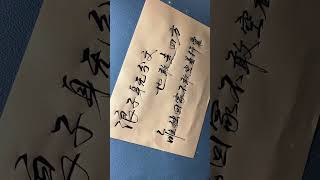 浪子身无分文
也敢走四方
唯独回家不敢空着行囊